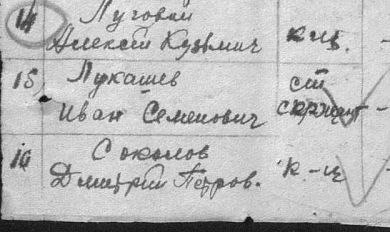 14 Луговой
Алексей Кузьмич к-ц.
15 Лукашев ст
Иван Семенович сержант -
16 Соколов
Дмитрий Петров. к-ц